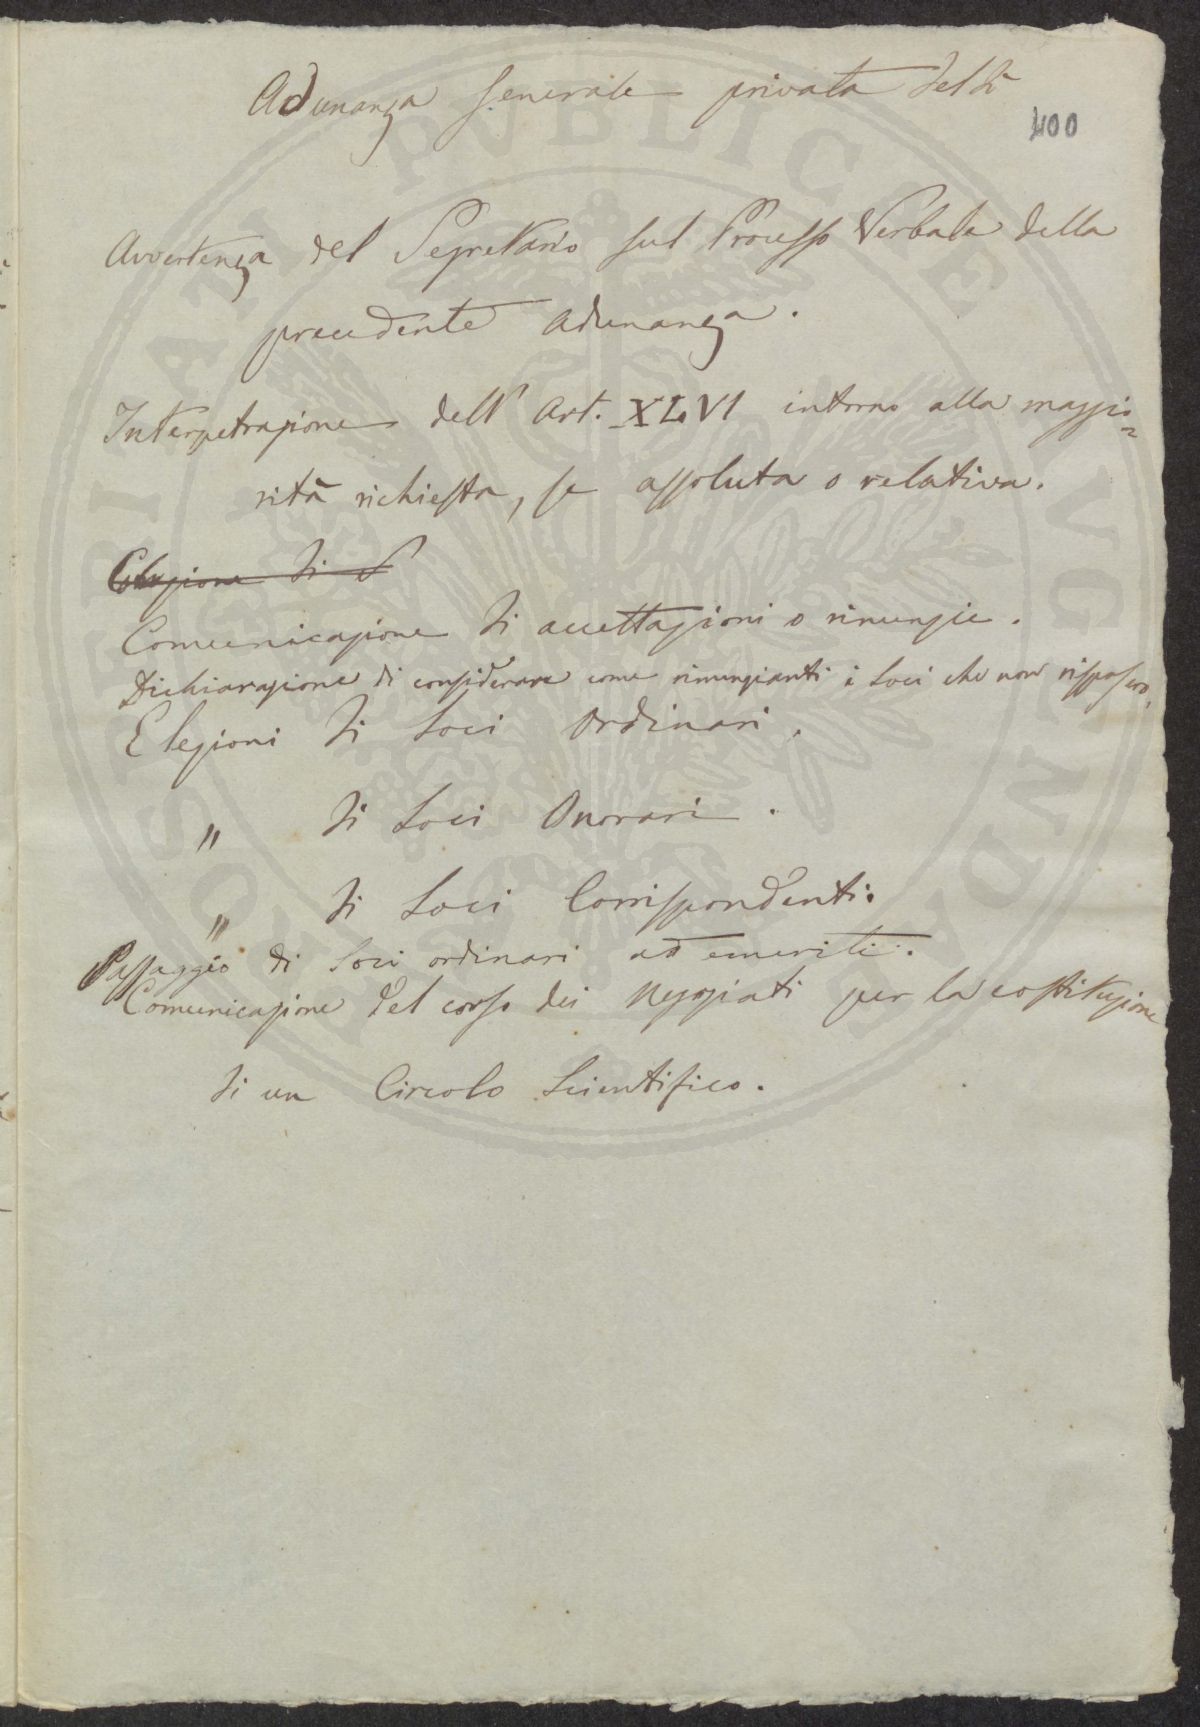 Adunanza Generale privata del dì
400
Avvertenza del Segretario sul Processo Verbale della
precedente Adunanza.
Interpetrazione dell' Art. XLVI intorno alla maggio=
rità richiesta, se assoluta o relativa.
Comunicazione di accettazioni o rinunzie.
Dichiarazione di considerare come rinunzianti i Soci che non risposero.
Elezioni di Soci Ordinari.
" di Soci Onorari.
" di Soci Corrispondenti.
Passaggio di Soci ordinari ad emeriti.
Comunicazione del corso dei Negoziati per la costituzione
di un Circolo Scientifico.